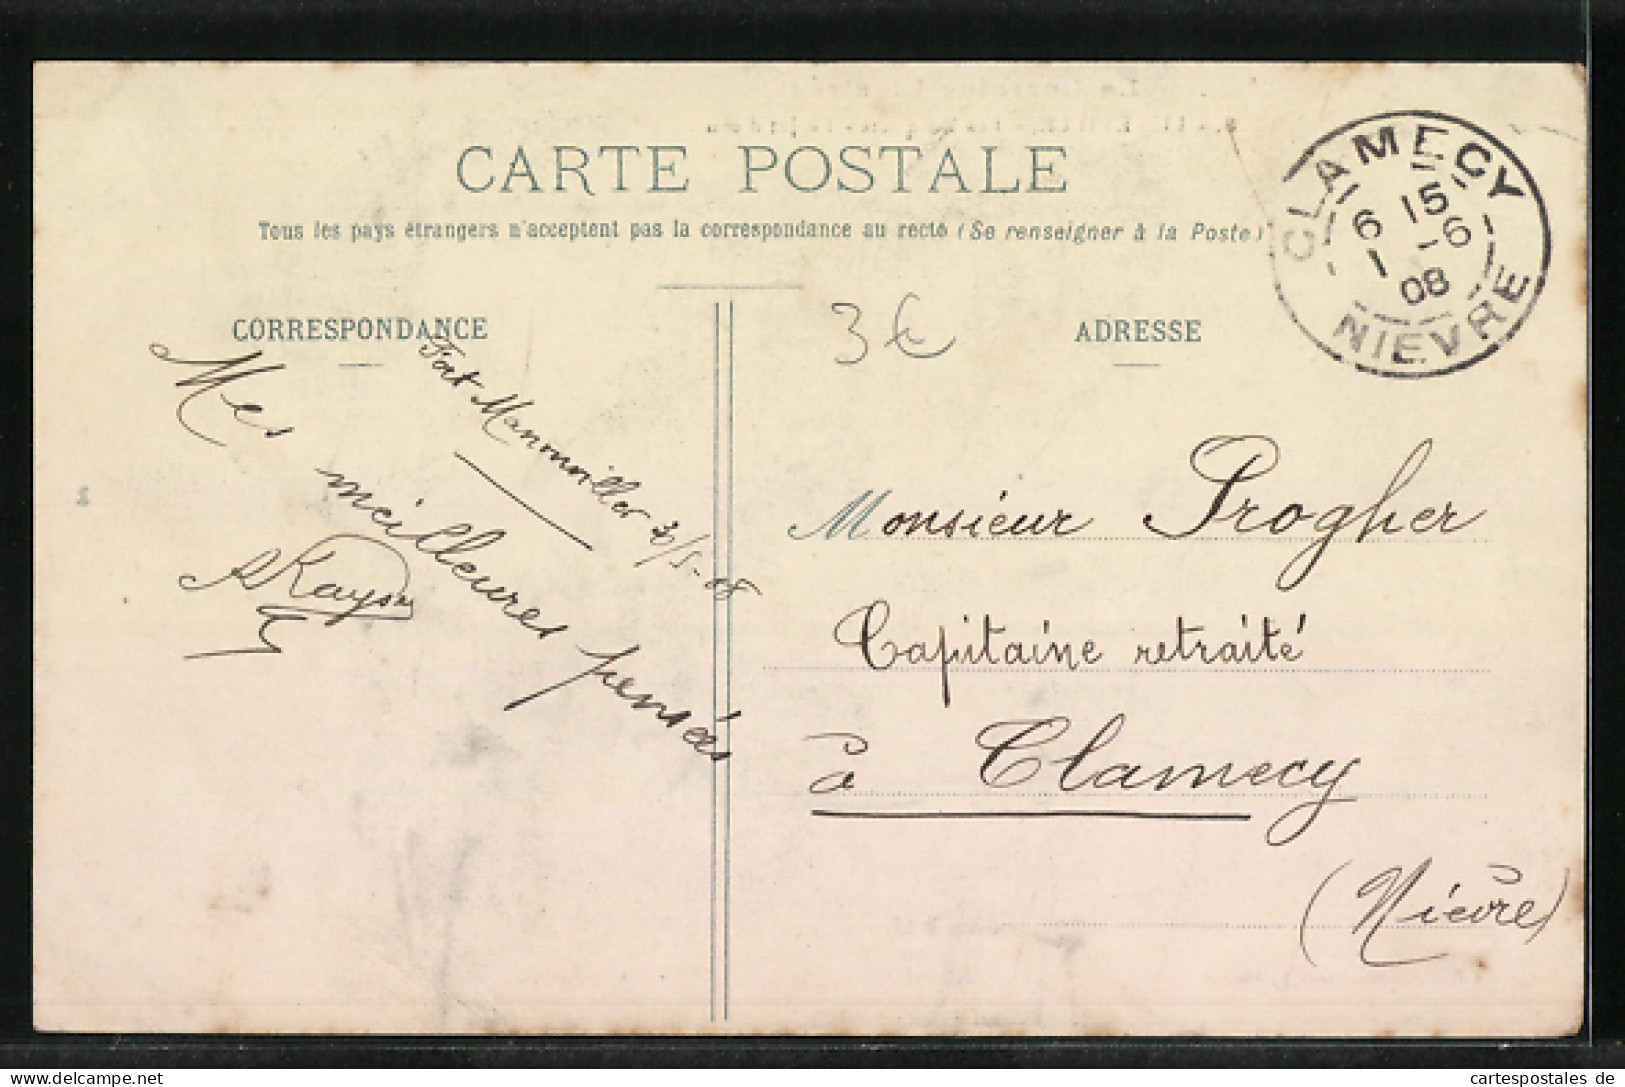 CARTE POSTALE
Tous les pays étrangers n'acceptent pas la correspondance au recto (Se renseigner à la Poste)
CLAMECY
6 15
1 -6
08
NIEVRE
CORRESPONDANCE
ADRESSE
3€
Fort Manonviller
Mes meilleures pensées
Monsieur Progher
Capitaine retraité
à Clamecy
(Nièvre)
cartespostales de